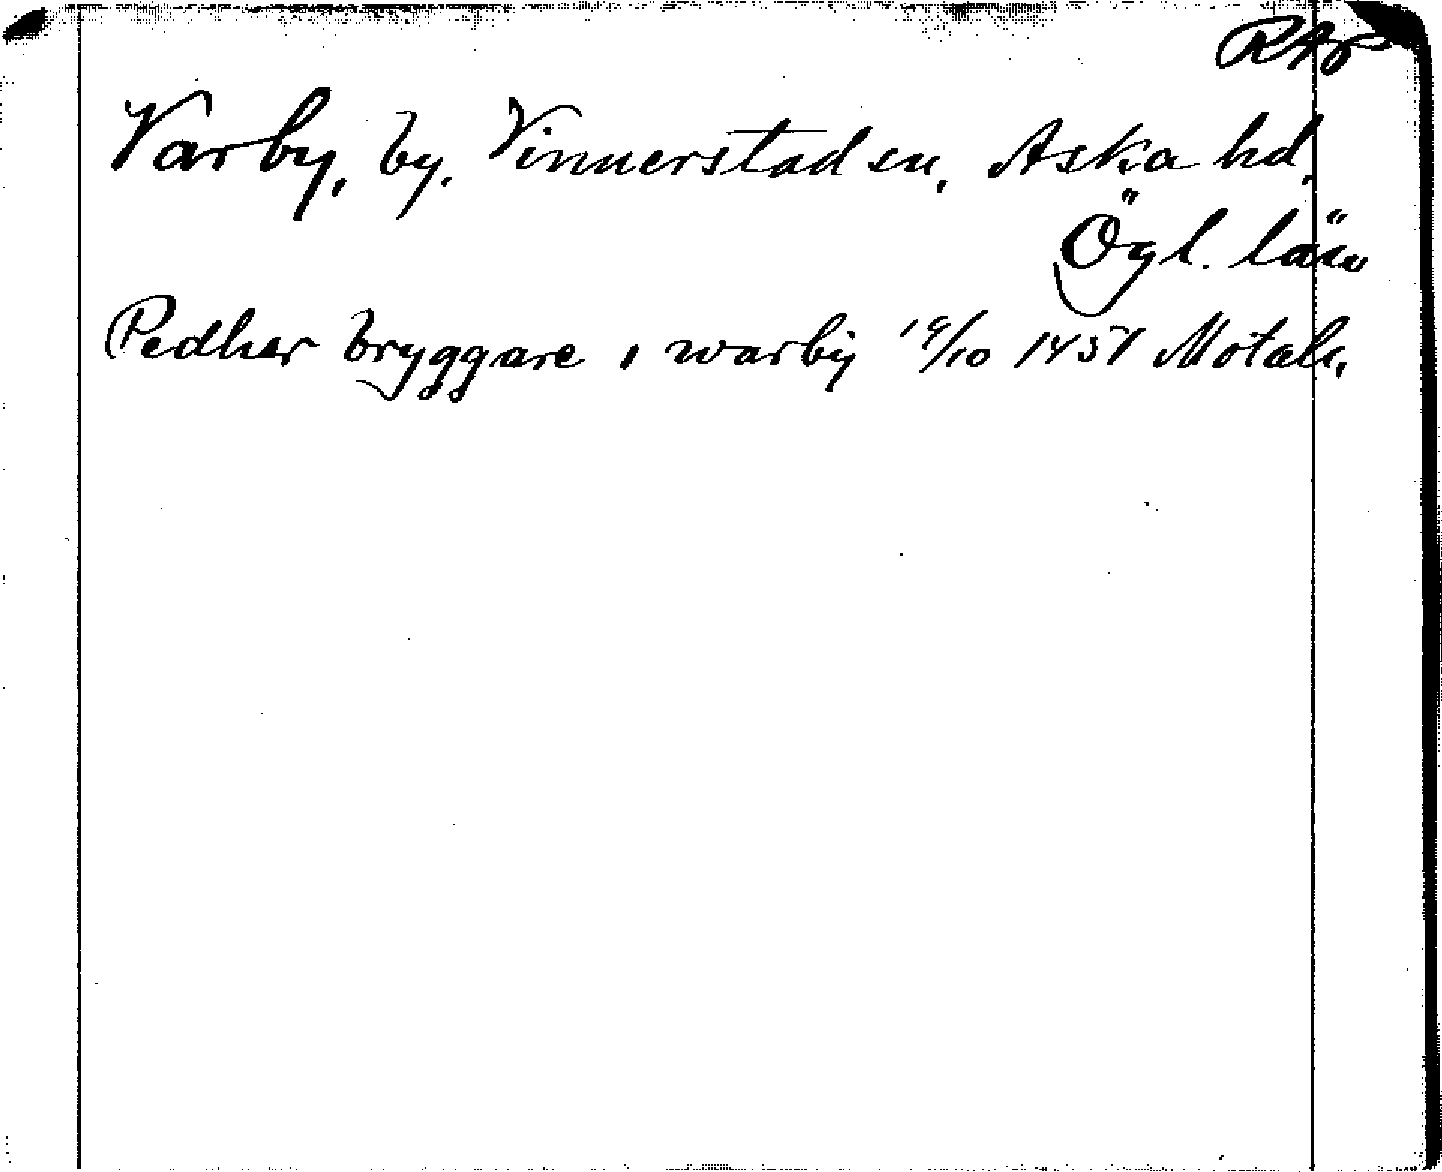 RAp
Varby, by. Vinnerstad sn, Aska hd.
Ögl. län
Pedher bryggare i warby 19/10 1457 Motala